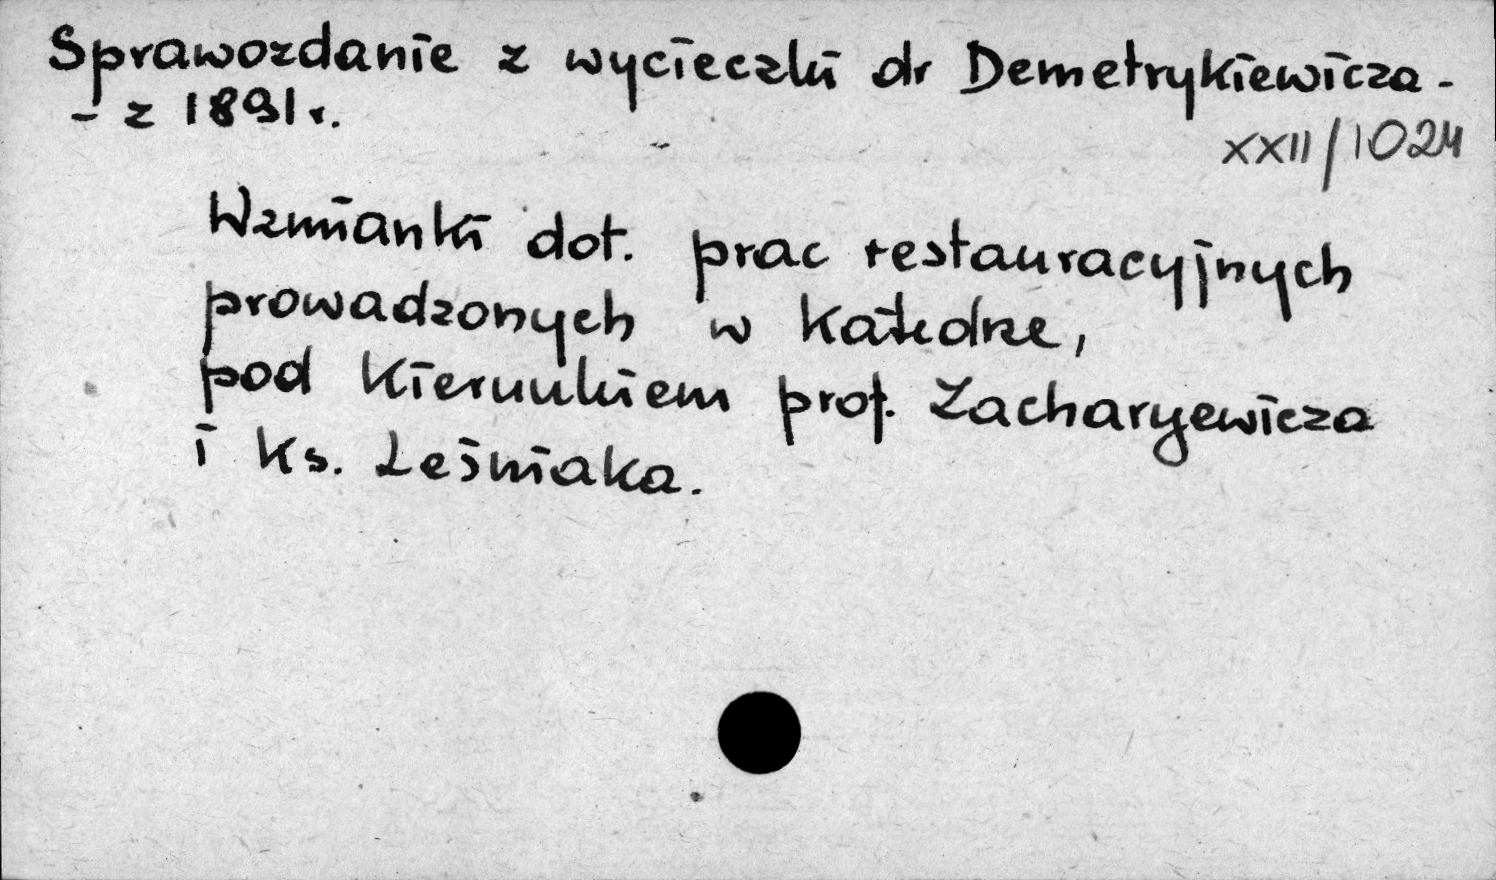 Sprawozdanie z wycieczki dr Demetrykiewicza -
- z 1891 r.
XXII/1024
Wzmianki dot. prac restauracyjnych
prowadzonych w Katedrze,
pod kierunkiem prof. Zacharyewicza
i ks. Leśniaka.